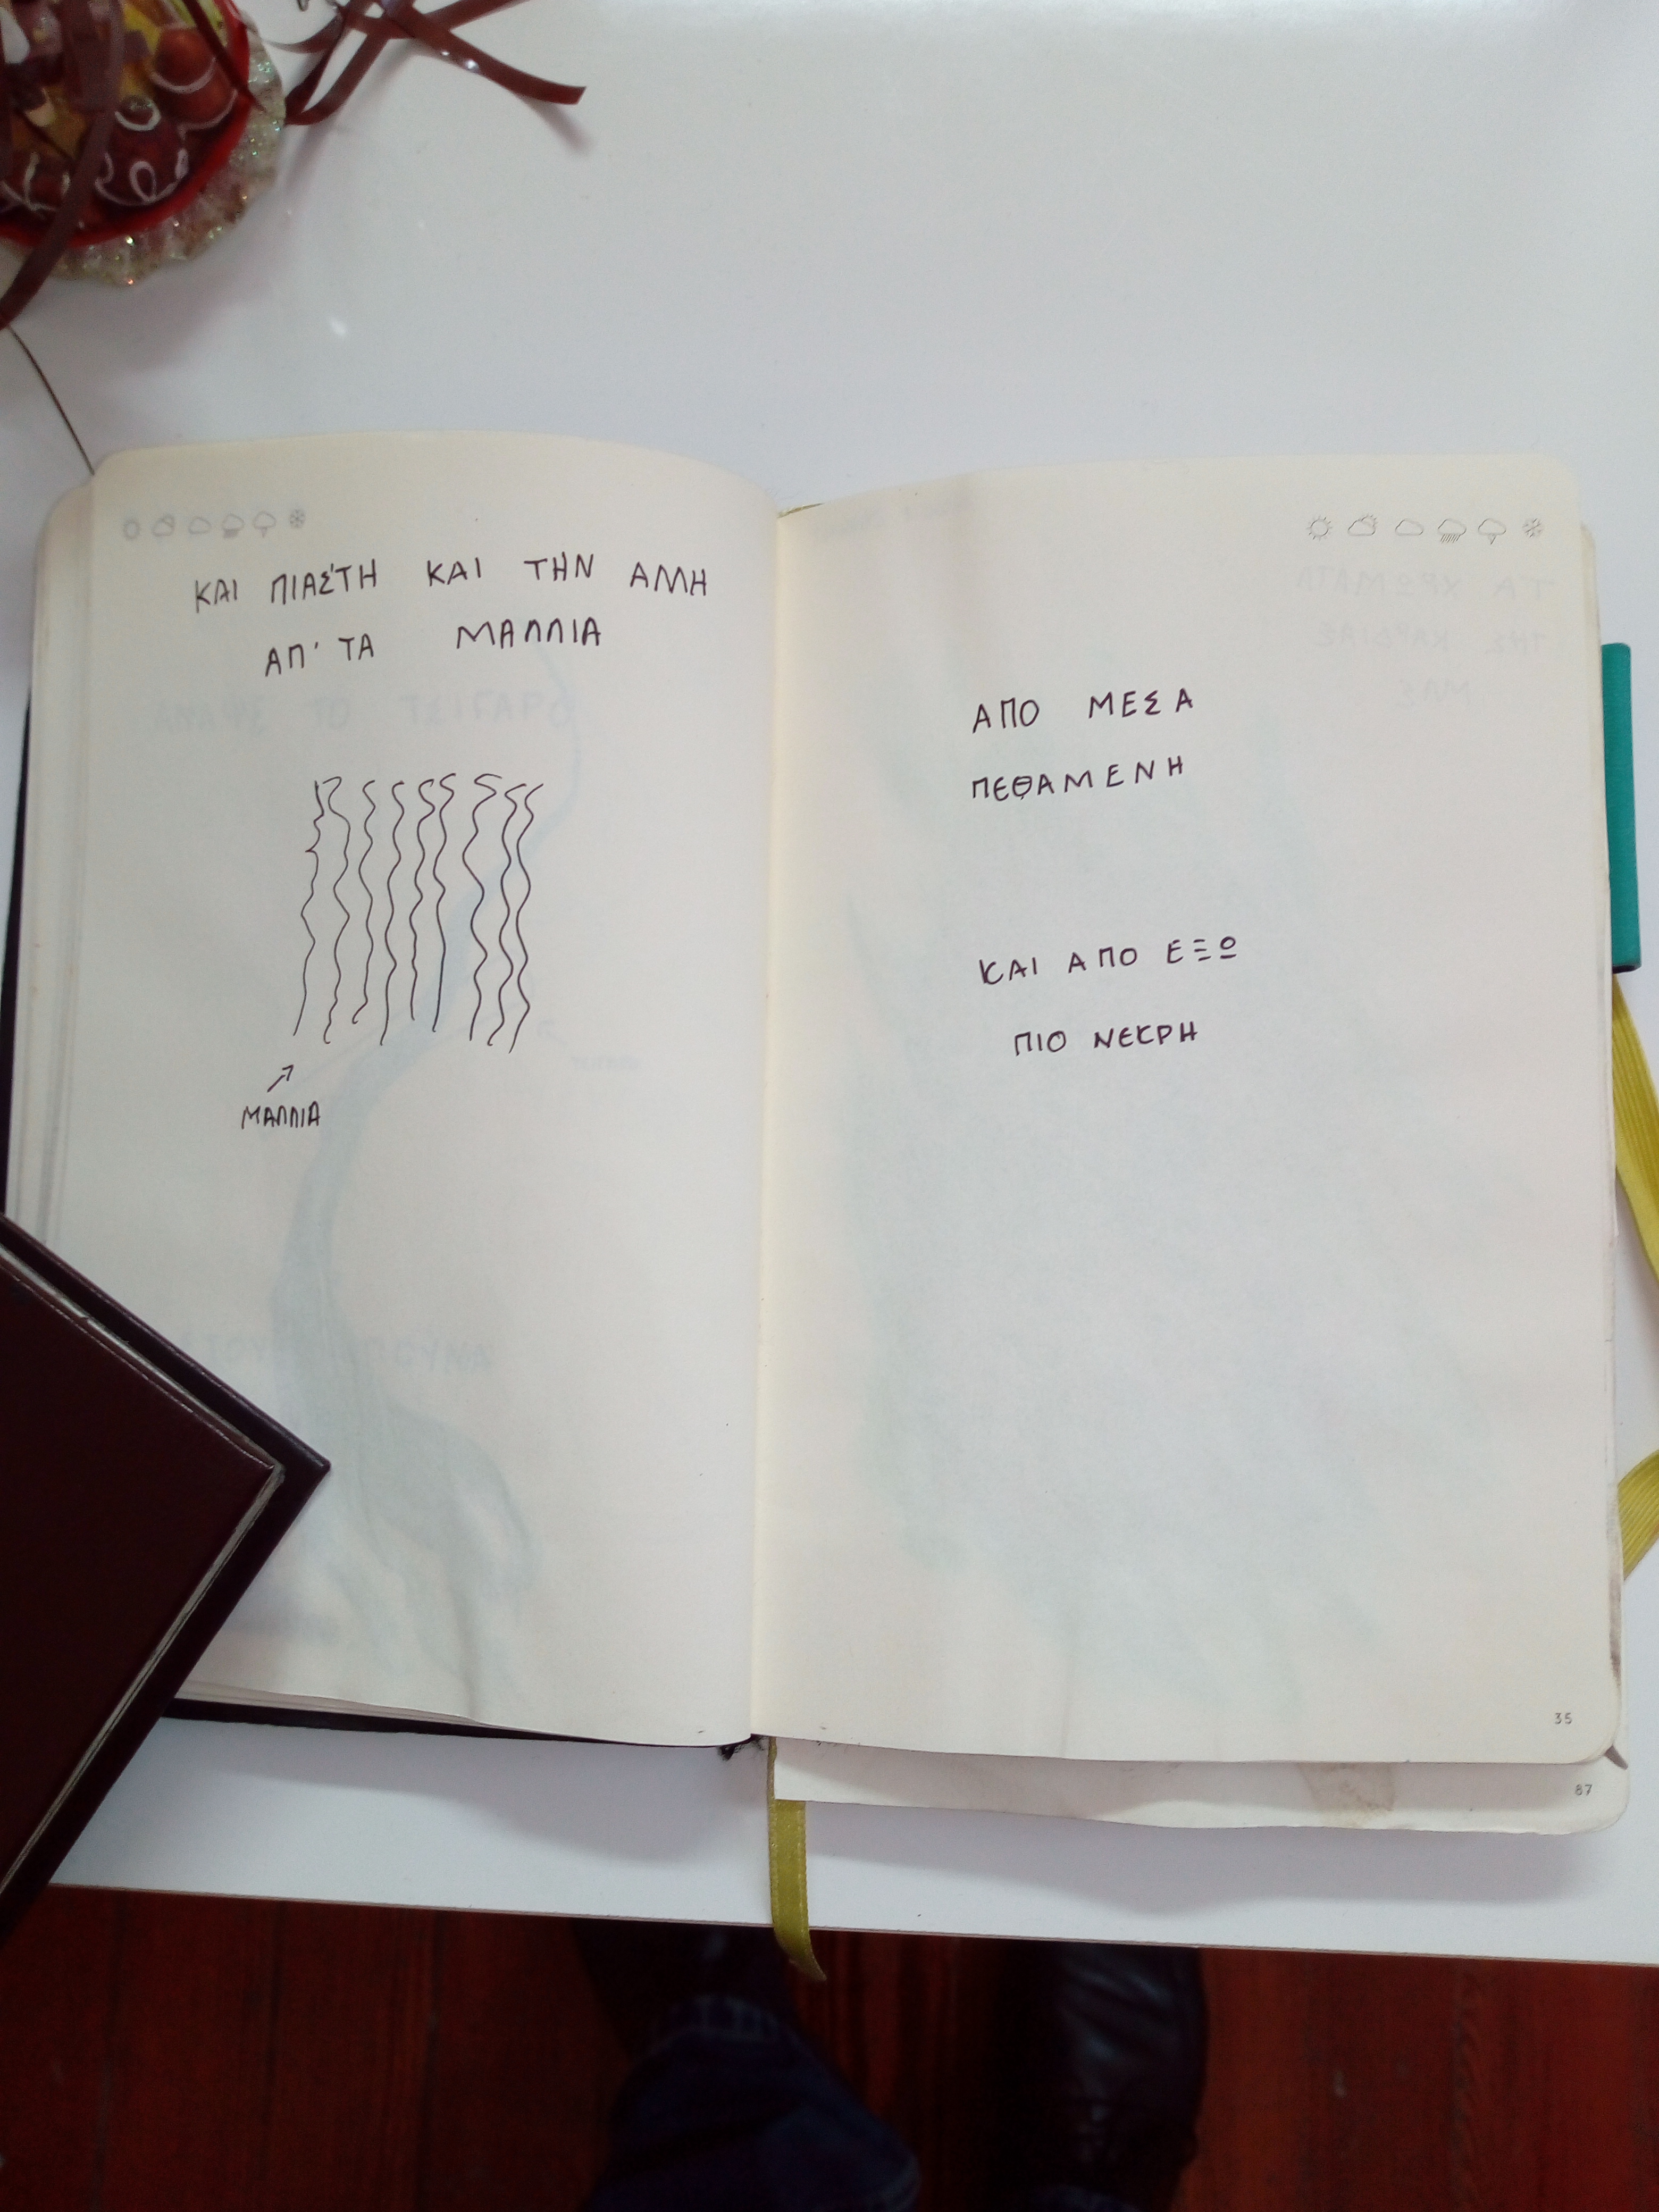 ΚΑΙ ΠΙΑΣ'ΤΗ ΚΑΙ ΤΗΝ ΑΛΛΗ
ΑΠ' ΤΑ ΜΑΛΛΙΑ
ΜΑΛΛΙΑ
ΑΠΟ ΜΕΣΑ
ΠΕΘΑΜΕΝΗ
ΚΑΙ ΑΠΟ ΕΞΩ
ΠΙΟ ΝΕΚΡΗ
35
87